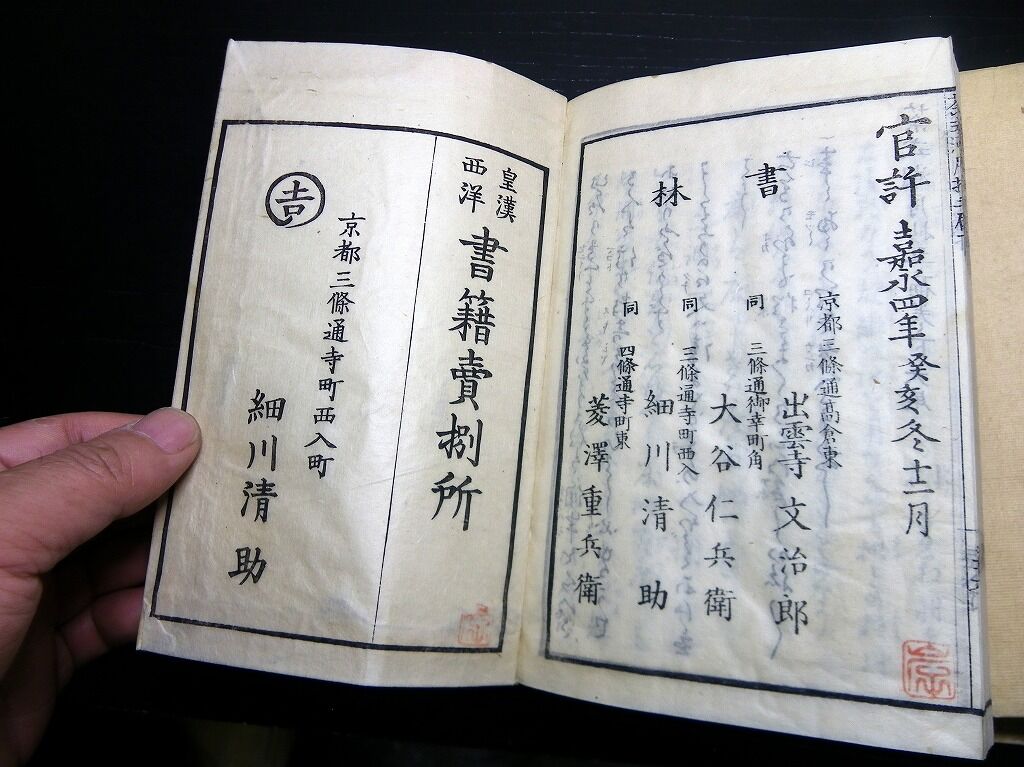 官許嘉永四年癸亥冬十二月
書林
京都三條通高倉東
出雲寺文治郎
同 三條通御幸町角
大谷仁兵衛
同 三條通寺町西入
細川清助
同 四條通寺町東
菱澤重兵衛
皇漢
西洋
書籍賣捌所
京都三條通寺町西入町
細川清助
吉